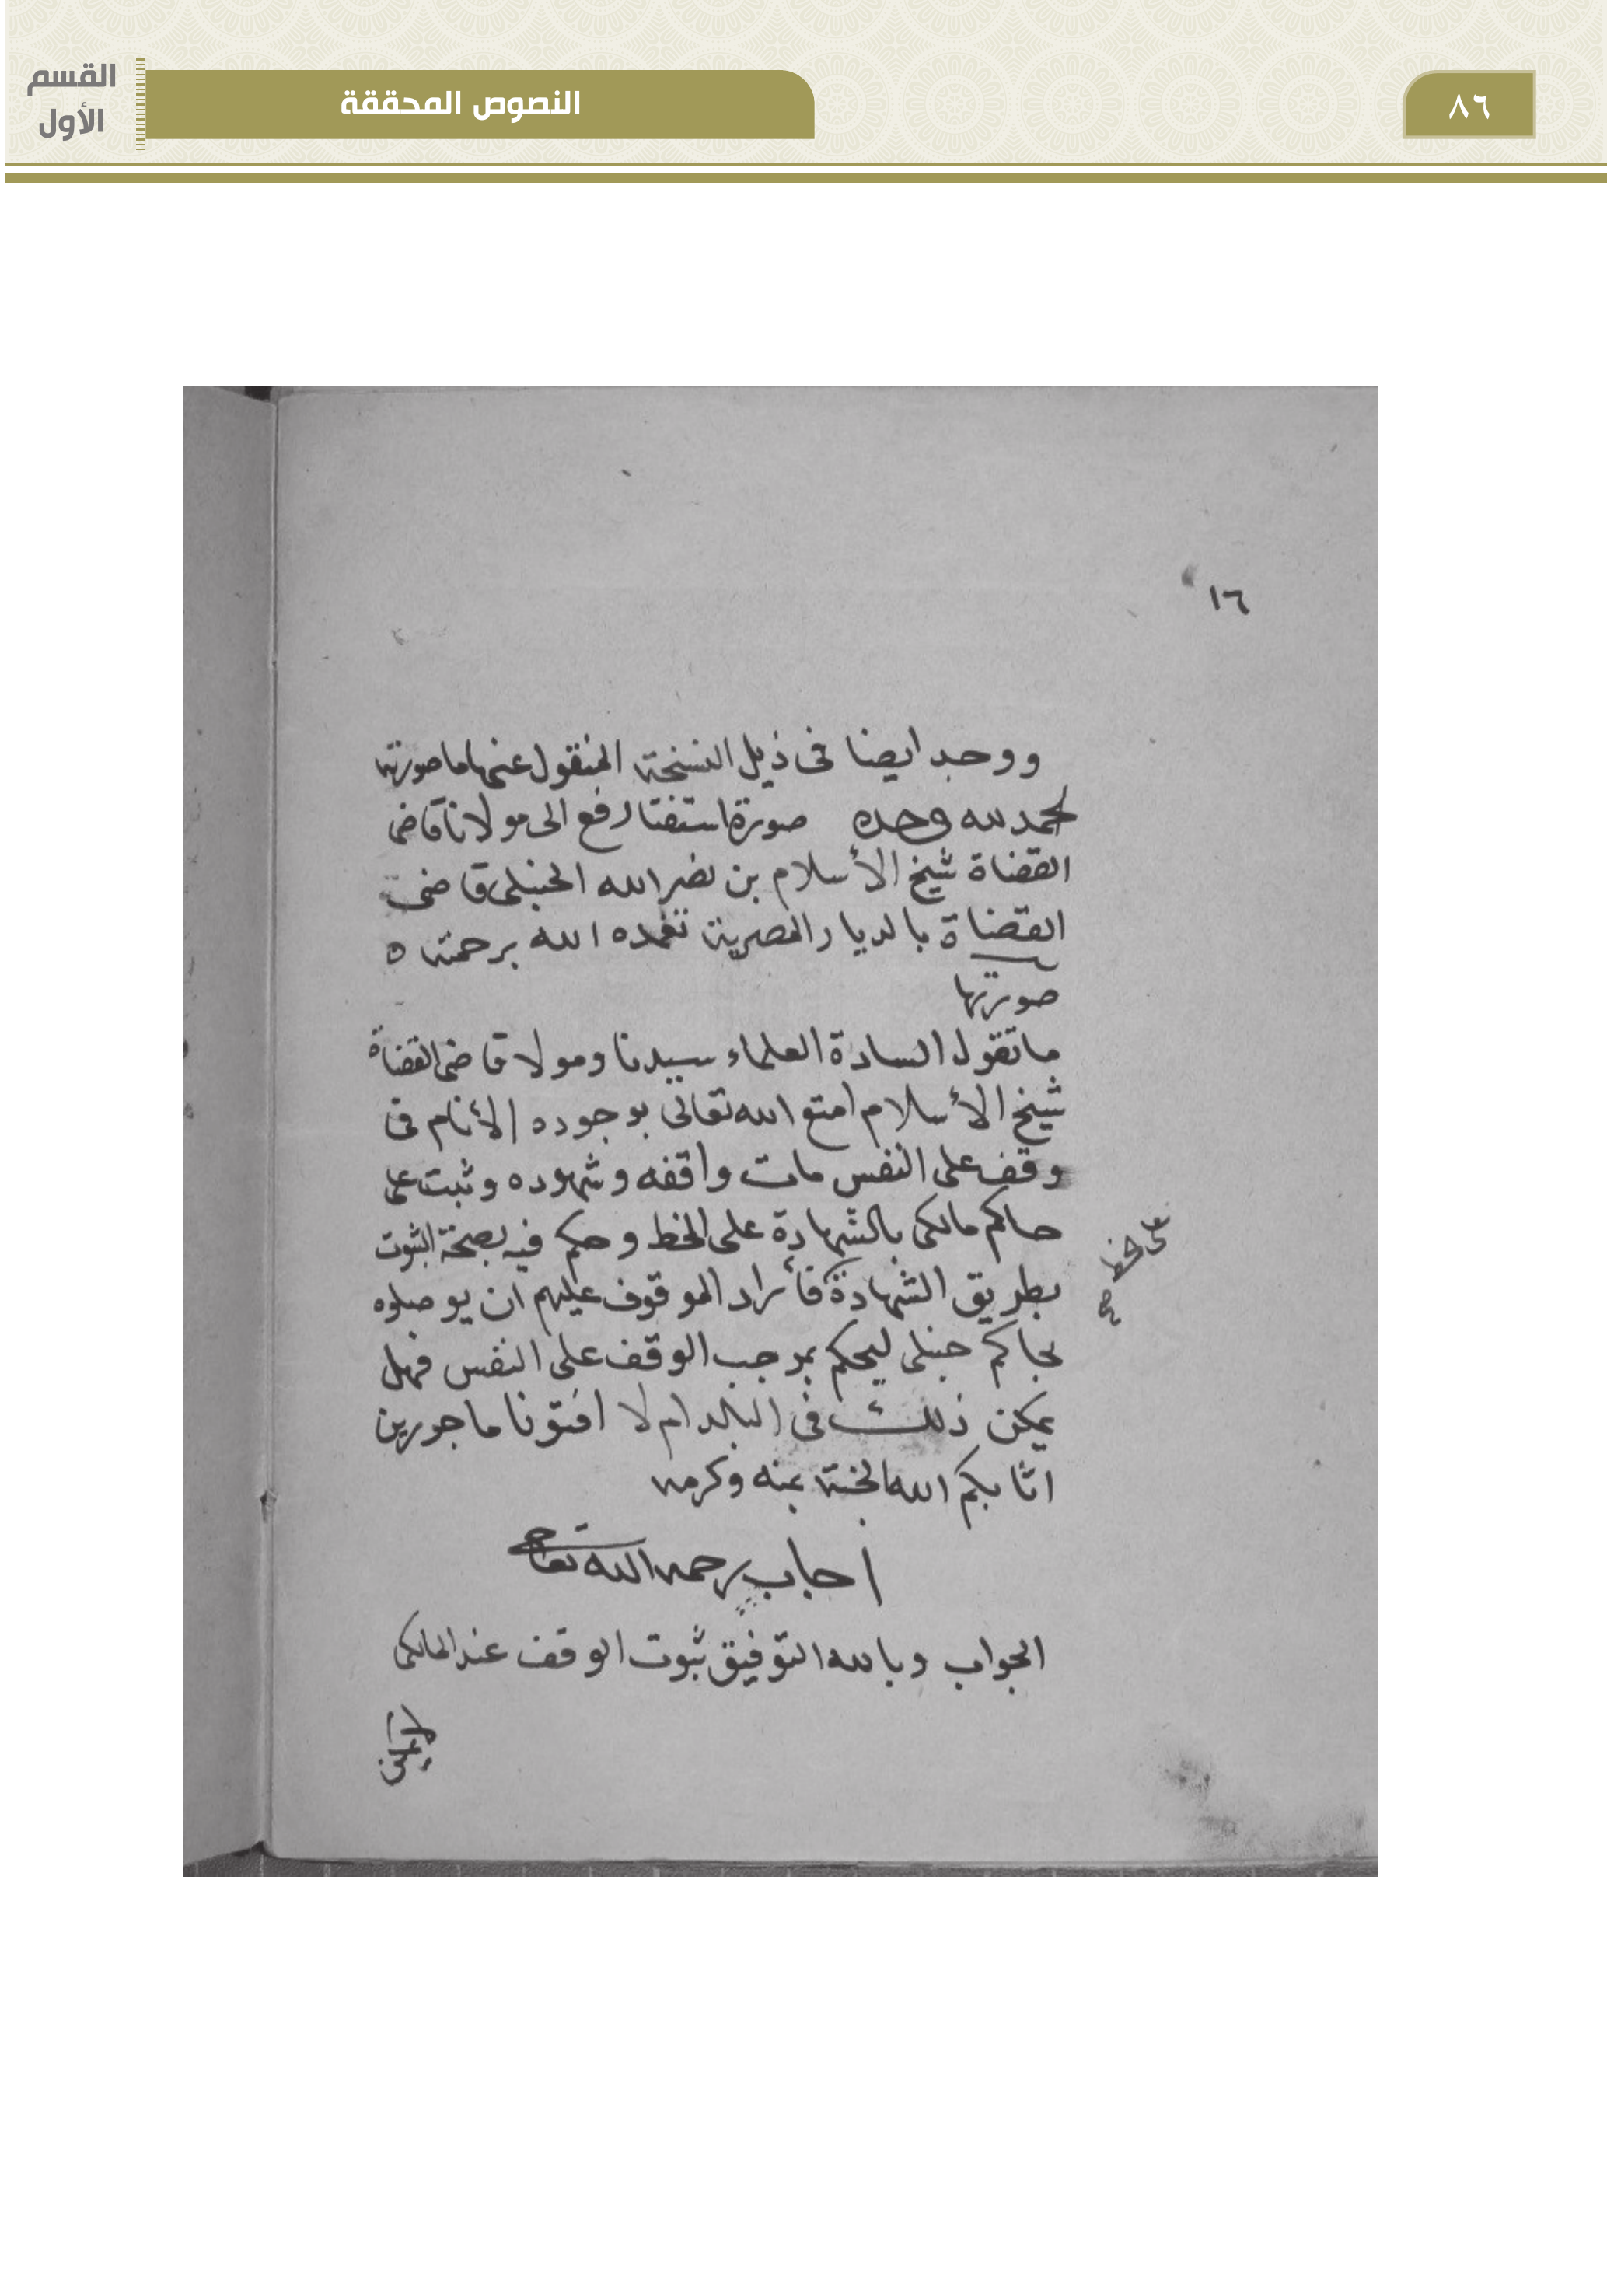 ٨٦
النصوص المحققة
القسم
الأول
١٦
ووجد ايضا فى ذيل النسخة المنقول عنها ما صورته
الحمد لله وحده صورة استفتا رفع الى مولانا قاضى
القضاة شيخ الأسلام بن نصر الله الحنبلى قاضى
القضاة بالديار المصرية تغمده الله برحمته ه
صورتها
ما تقول السادة العلماء سيدنا ومولا قاضى القضاة
شيخ الأسلام امتع الله تعالى بوجوده الأنام فى
وقف على النفس مات واقفه وشهوده وثبت على
حاكم مالكى بالشهادة على الخط وحكم فيه بصحة الثبوت
بطريق الشهادة فأراد الموقوف عليهم ان يوصلوه
على خط
صح
بحاكم حنبلى ليحكم بموجب الوقف على النفس فهل
يمكن ذلك فى البلد ام لا افتونا ماجورين
اثابكم الله الجنة بمنه وكرمه
اجاب رحمه الله تعالى
الجواب وبالله التوفيق ثبوت الوقف عند المالكى